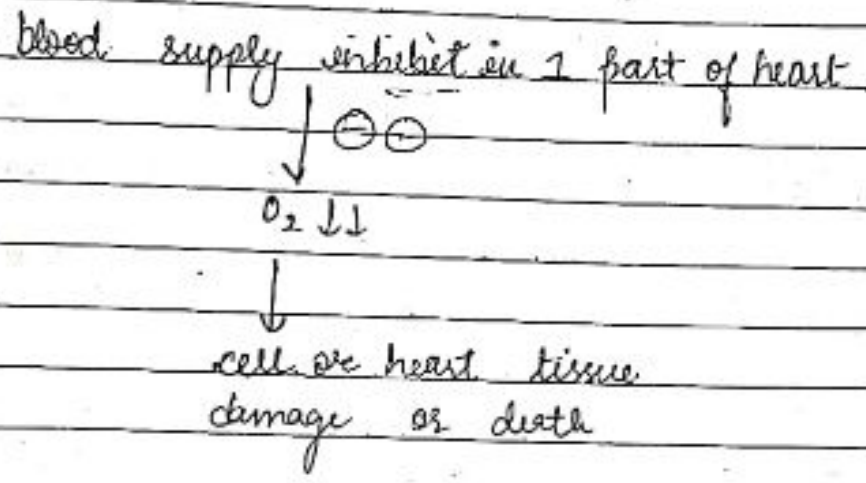 blood supply inhibit in 1 part of heart
↓ ⊖ ⊖
O₂ ↓↓
↓
cell or heart tissue
damage or death